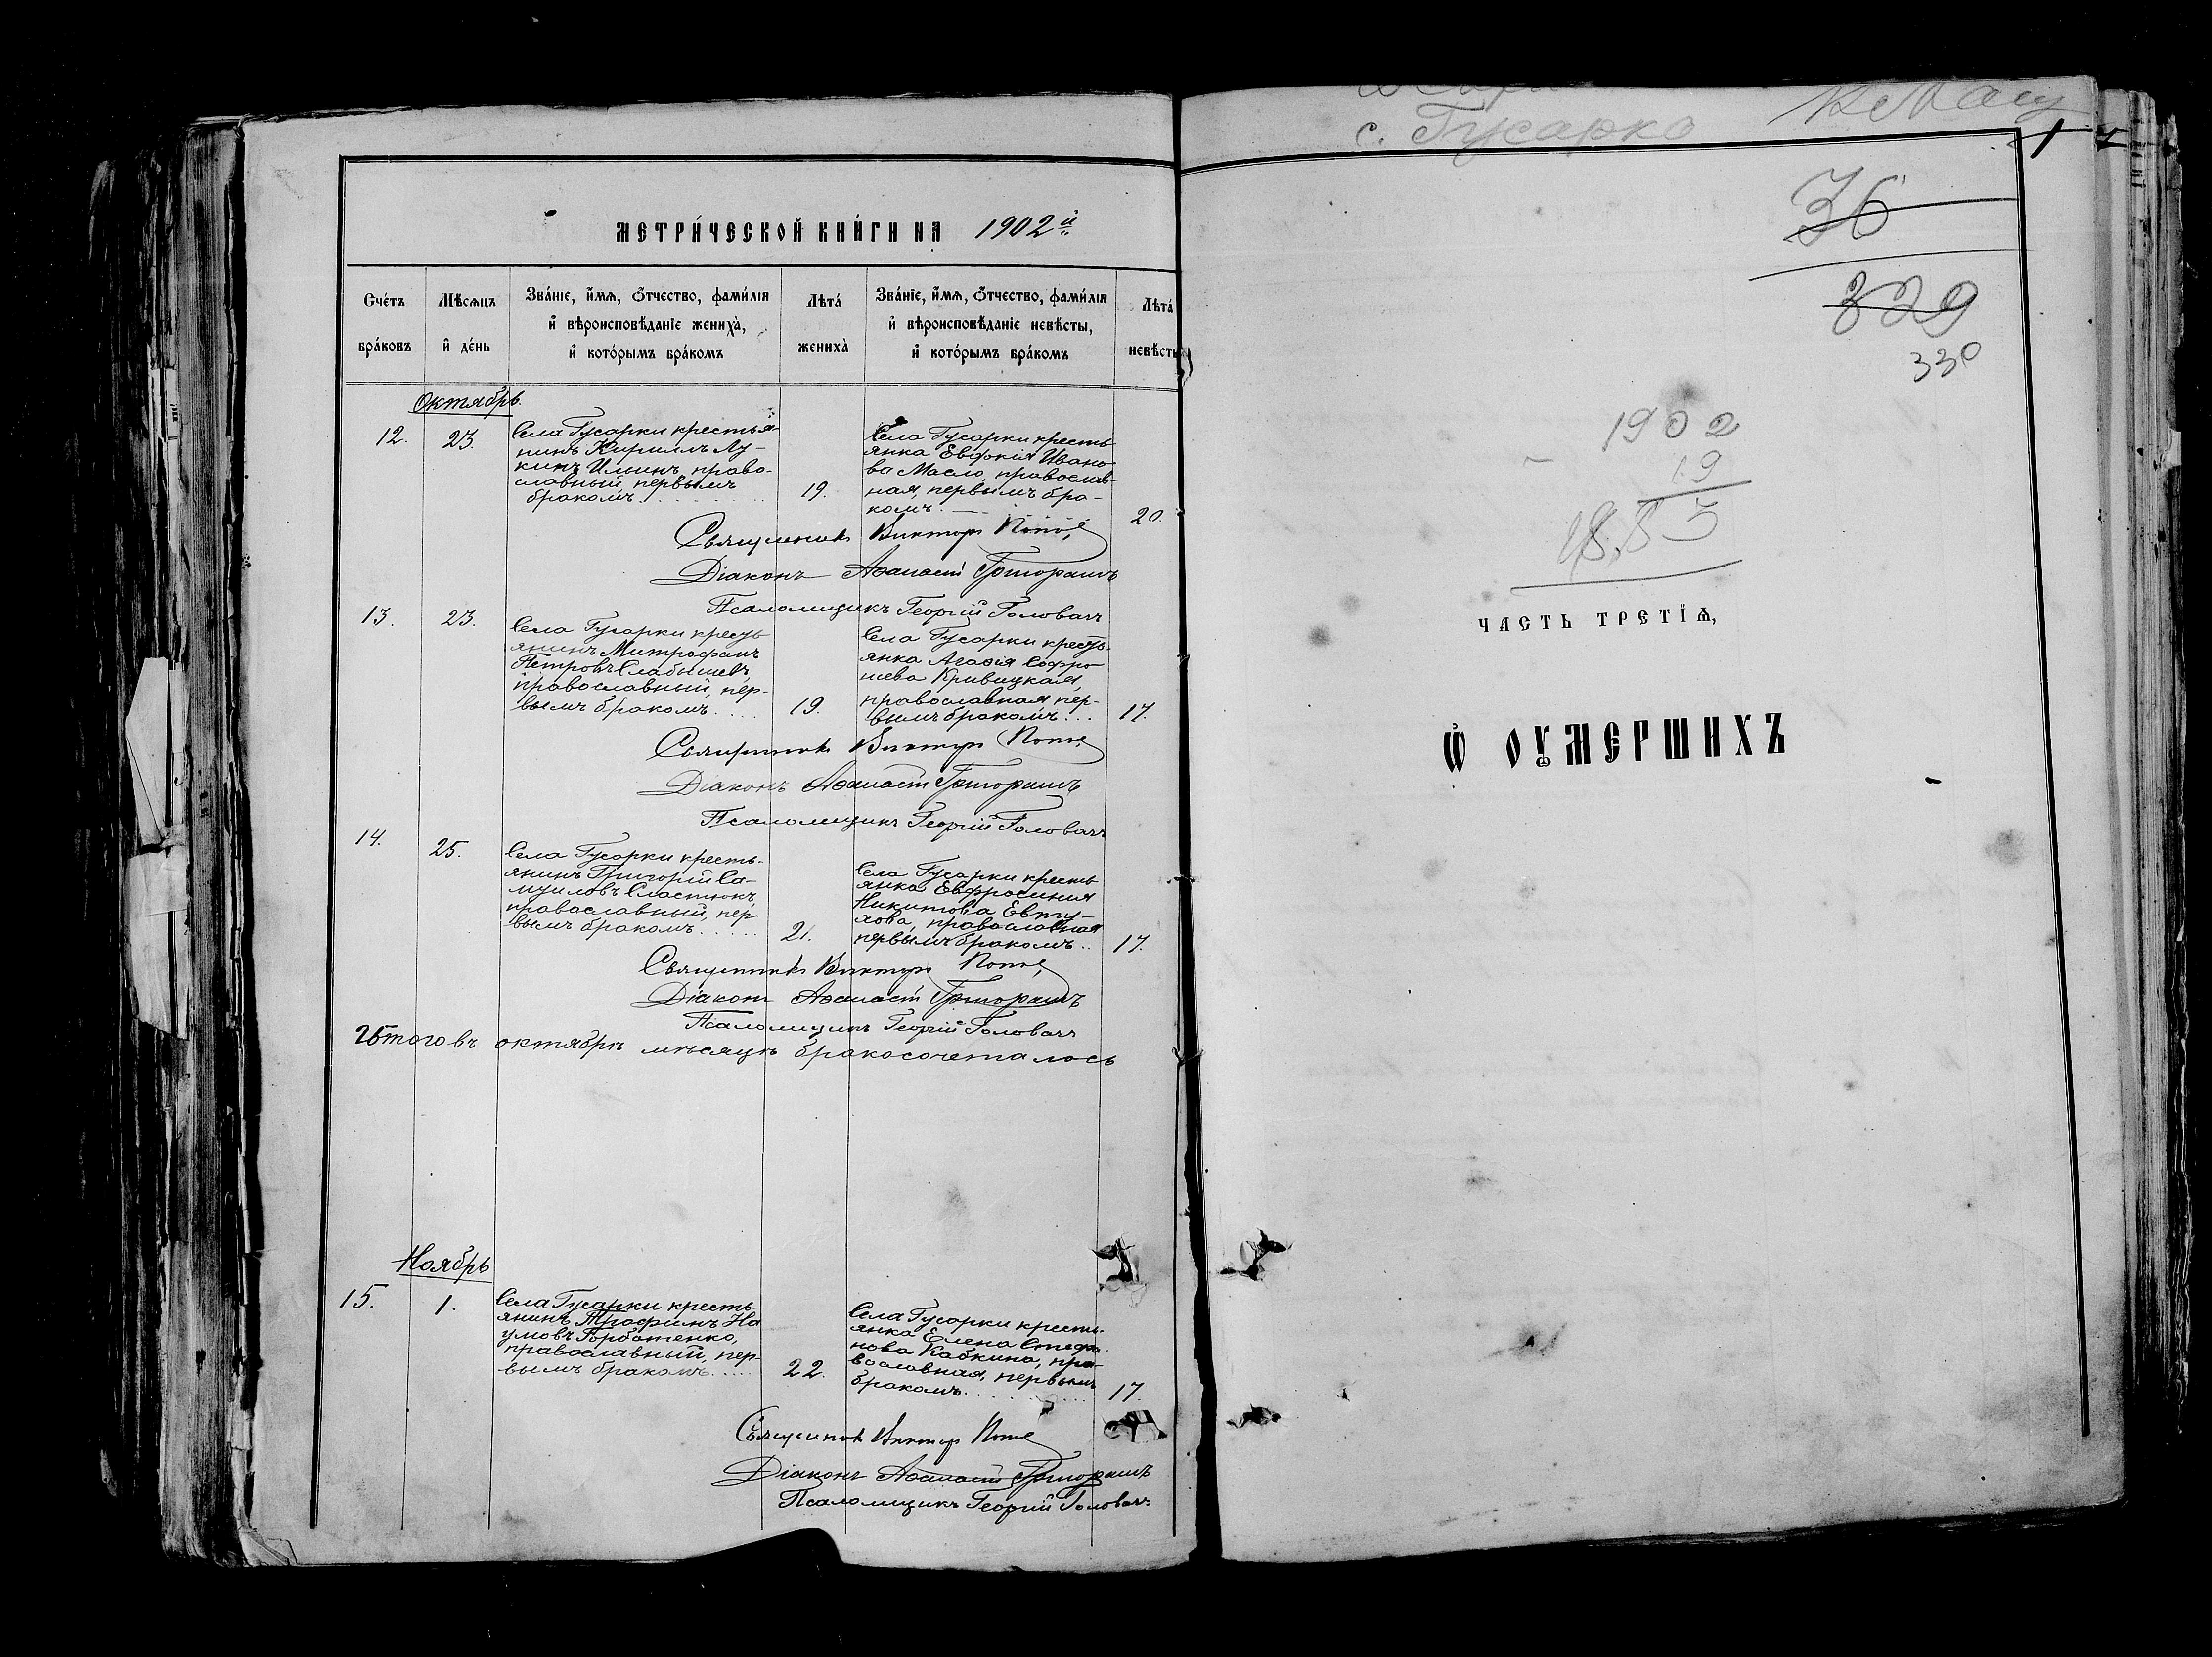 МЕТРИ́ЧЕСКОЙ КНИ́ГИ НА 1902 й
Сче́тъ бра́ковъ
Мѣсѧцъ и҆ де́нь
Зва́нїе, и҆́мѧ, ѻ҆́тчество, фами́лїѧ
и҆ вѣроисповѣ́данїе жениха̀,
и҆ кото́рымъ бра́комъ
Лѣта́ жениха̀
Зва́нїе, и҆́мѧ, ѻ҆́тчество, фами́лїѧ
и҆ вѣроисповѣ́данїе невѣ́сты,
и҆ кото́рымъ бра́комъ
Лѣта́ невѣ́сты
Октябрь.
12.
23.
Села Гусарки крестья-
нинъ Кириллъ Лу-
кинъ Ильинъ, право-
славный, первымъ
бракомъ
19.
Села Гусарки кресть-
янка Евфокія Ивано-
ва Масло, православ-
ная, первымъ бра-
комъ.
20.
Священникъ Викторъ Поповъ
Діаконъ Аѳанасій Григорашъ
Псаломщикъ Георгій Головачъ
13.
23.
Села Гусарки кресть-
янинъ Митрофанъ
Петровъ Слабышевъ,
православный, пер-
вымъ бракомъ
19.
Села Гусарки кресть-
янка Агаѳія Софро-
нева Кривицкая,
православная, пер-
вымъ бракомъ
17.
Священникъ Викторъ Поповъ
Діаконъ Аѳанасій Григорашъ
Псаломщикъ Георгій Головачъ
14.
25.
Села Гусарки кресть-
янинъ Григорій Са-
муиловъ Сластюнъ,
православный, пер-
вымъ бракомъ
21.
Села Гусарки кресть-
янка Евфросинія
Никитова Евту-
хова, православная
первымъ бракомъ
17.
Священникъ Викторъ Поповъ
Діаконъ Аѳанасій Григорашъ
Псаломщикъ Георгій Головачъ
Итого въ октябрѣ мѣсяцѣ бракосочеталось
Ноябрь
15.
1.
Села Гусарки кресть-
янинъ Трофимъ На
умовъ Горбатенко,
православный, пер-
вымъ бракомъ
22.
Села Гусарки кресть-
янка Елена Стефа-
нова Кабкина, пра-
вославная, первымъ
бракомъ
17.
Священникъ Викторъ Поповъ
Діаконъ Аѳанасій Григорашъ
Псаломщикъ Георгій Головачъ
с. Гусарка
1
36
329
330
1902
19
ЧАСТЬ ТРЕТЇѦ,
Ѽ ОУМЕРШИХЪ